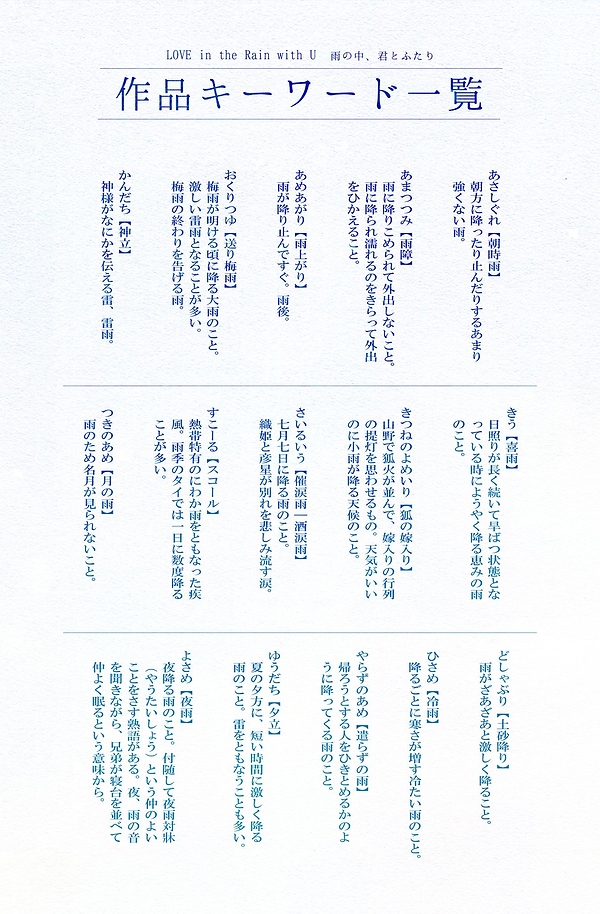 LOVE in the Rain with U　雨の中、君とふたり
作品キーワード一覧
あさしぐれ【朝時雨】
朝方に降ったり止んだりするあまり
強くない雨。
あまつつみ【雨障】
雨に降りこめられて外出しないこと。
雨に降られ濡れるのをきらって外出
をひかえること。
あめあがり【雨上がり】
雨が降り止んですぐ。雨後。
おくりつゆ【送り梅雨】
梅雨が明ける頃に降る大雨のこと。
激しい雷雨となることが多い。
梅雨の終わりを告げる雨。
かんだち【神立】
神様がなにかを伝える雷、雷雨。
きう【喜雨】
日照りが長く続いて旱ばつ状態とな
っている時にようやく降る恵みの雨
のこと。
きつねのよめいり【狐の嫁入り】
山野で狐火が並んで、嫁入りの行列
の提灯を思わせるもの。天気がいい
のに小雨が降る天候のこと。
さいるいう【催涙雨―洒涙雨】
七月七日に降る雨のこと。
織姫と彦星が別れを悲しみ流す涙。
すこーる【スコール】
熱帯特有のにわか雨をともなった疾
風。雨季のタイでは一日に数度降る
ことが多い。
つきのあめ【月の雨】
雨のため名月が見られないこと。
どしゃぶり【土砂降り】
雨がざあざあと激しく降ること。
ひさめ【冷雨】
降るごとに寒さが増す冷たい雨のこと。
やらずのあめ【遣らずの雨】
帰ろうとする人をひきとめるかのよ
うに降ってくる雨のこと。
ゆうだち【夕立】
夏の夕方に、短い時間に激しく降る
雨のこと。雷をともなうことも多い。
よさめ【夜雨】
夜降る雨のこと。付随して夜雨対牀
（やうたいしょう）という仲のよい
ことをさす熟語がある。夜、雨の音
を聞きながら、兄弟が寝台を並べて
仲よく眠るという意味から。